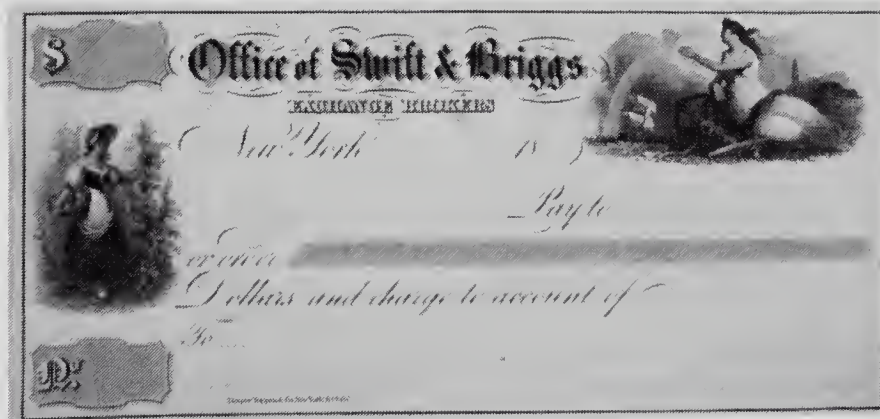 $ Office of Swift & Briggs
EXCHANGE BROKERS
New York 18
Pay to
or order
Dollars and charge to account of
To
No.